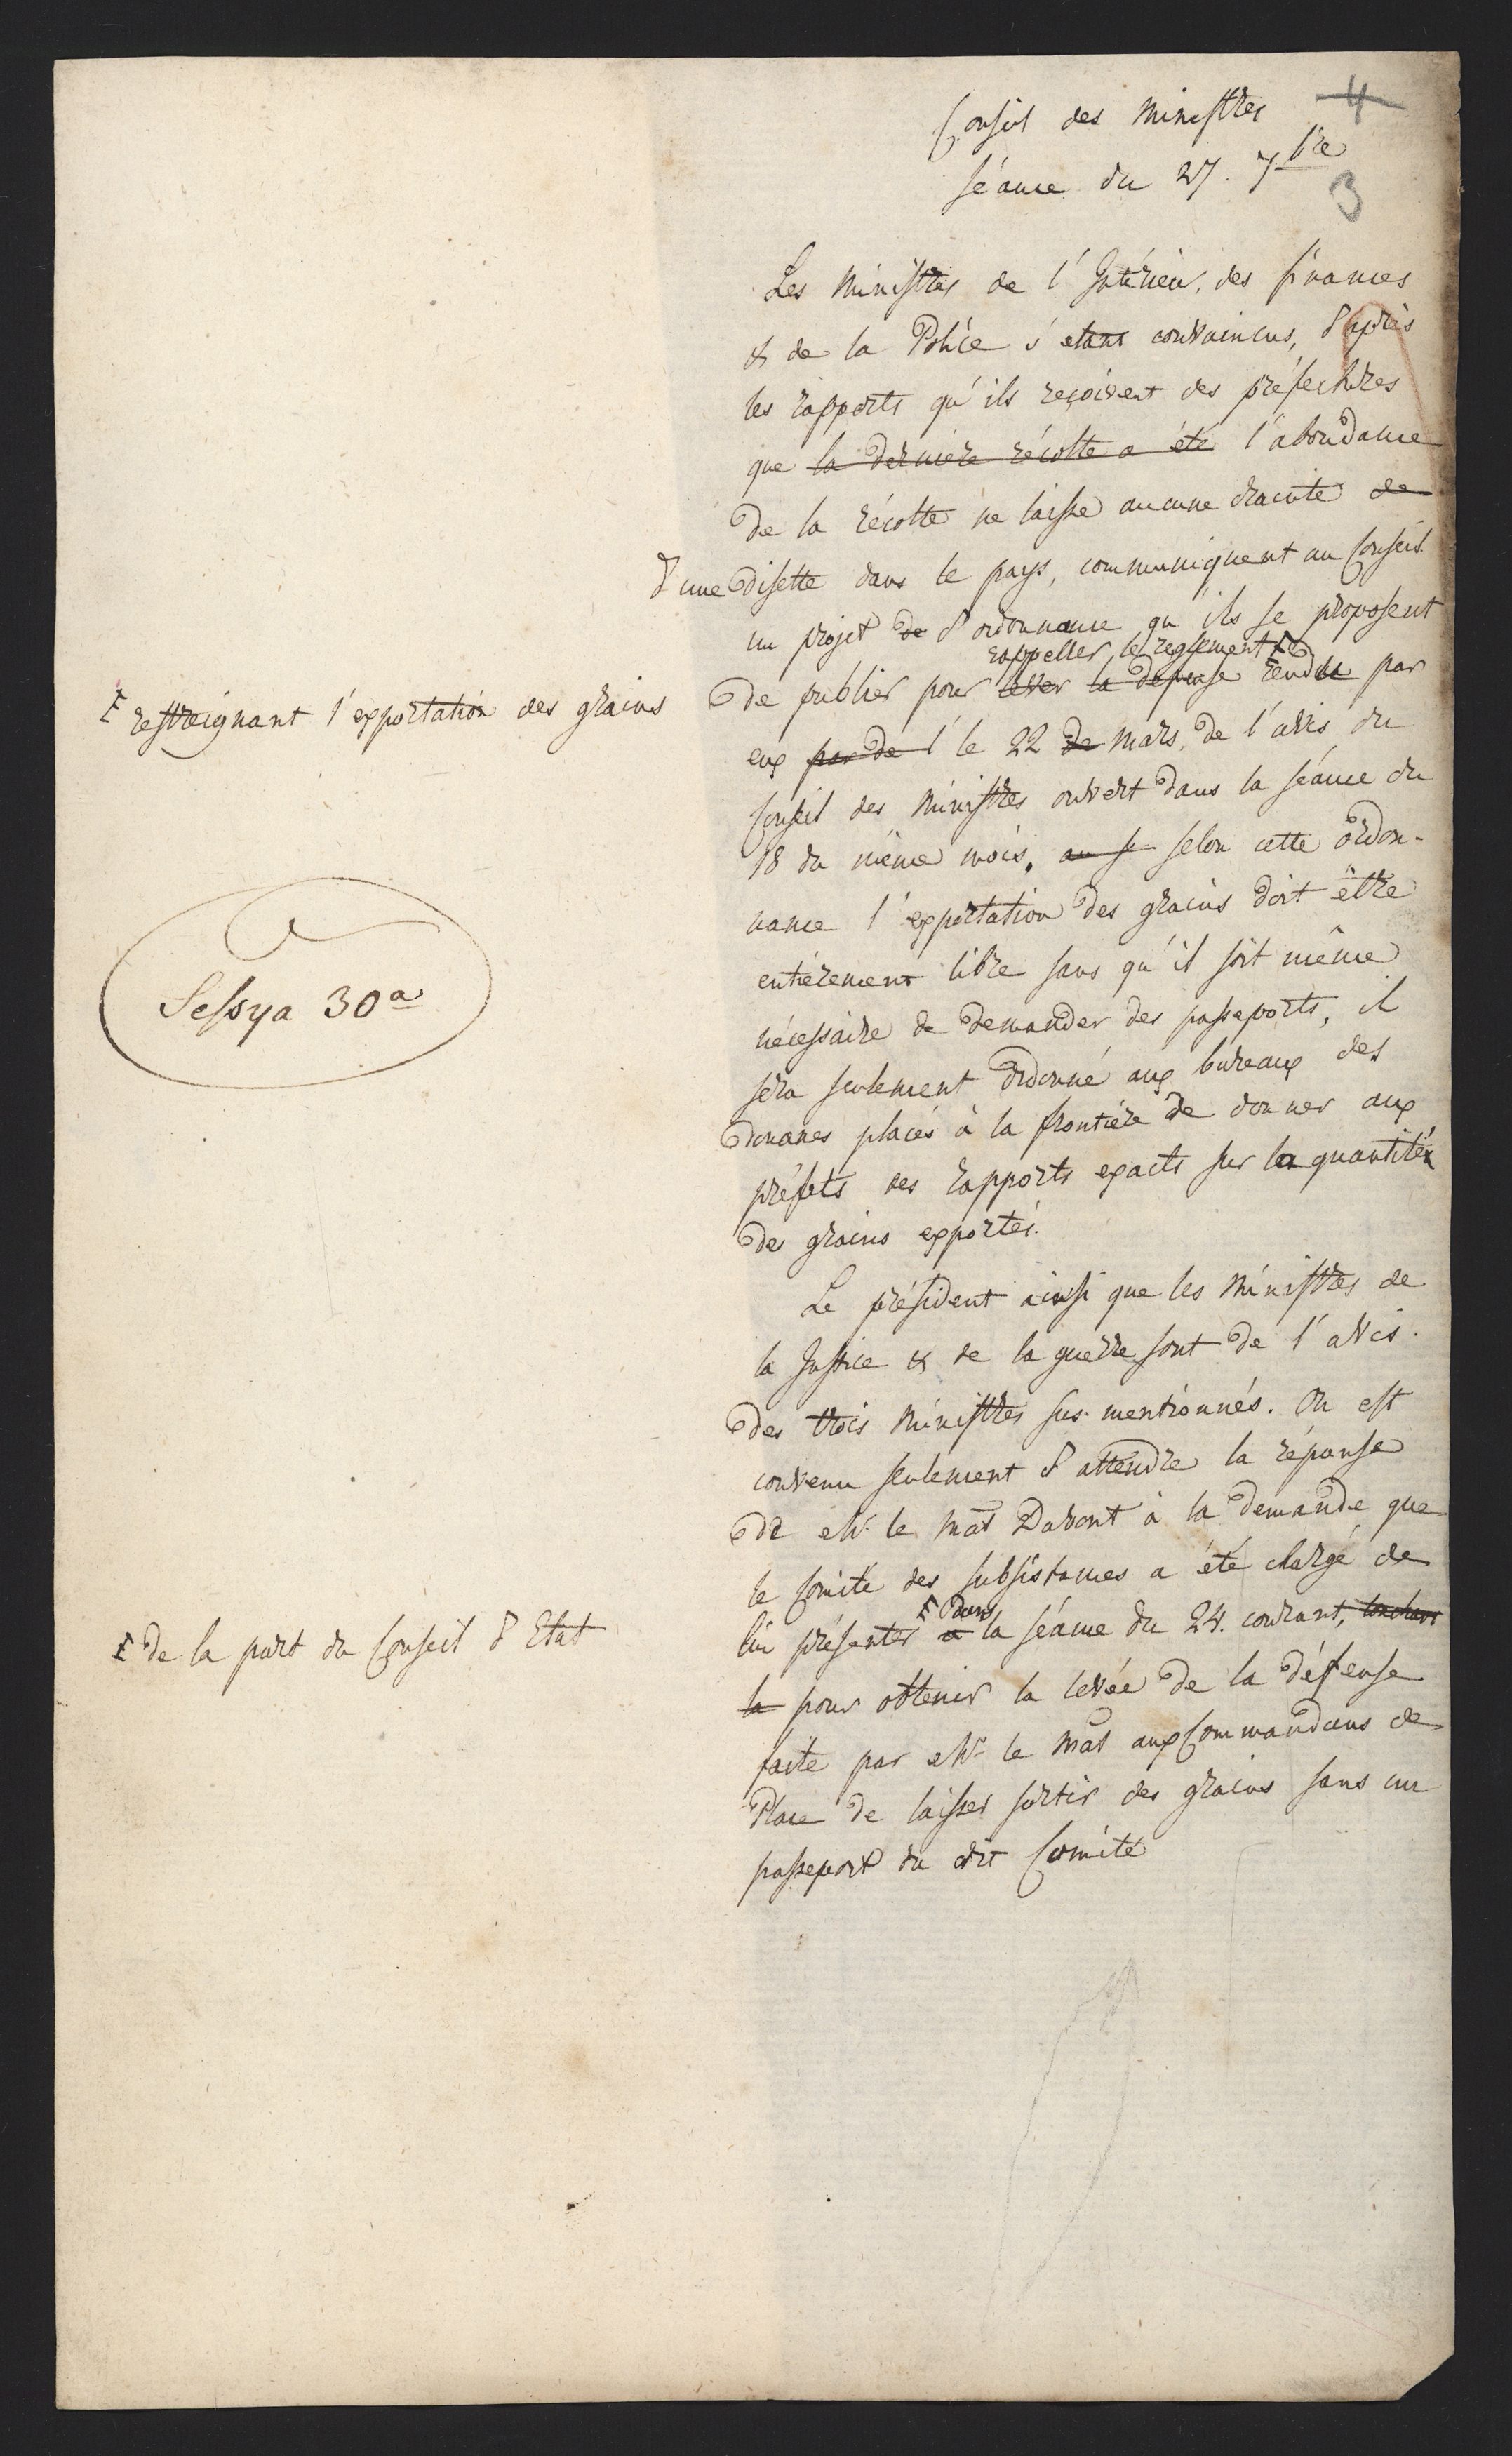 4
Conseil des Ministres
Séance du 27. 7bre
3
Les Ministres de l'Intérieur, des finances
& de la Police s'étant convaincus, d'après
les rapports qu'ils reçoivent des préfectures
que la dernière récolte a été l'abondance
de la récolte ne laisse aucune crainte de
d'une disette dans le pays, communiquent au Conseil
un projet de d'ordonnance qu'ils se proposent
rappeller le reglement
de publier pour lever la défense rendu par
restreignant l'exportation des grains
eux par de l' le 22 de Mars, de l'avis du
Conseil des Ministres ouvert dans la séance du
18 du même mois. selon cette ordon-
nance l'exportation des grains doit être
entièrement libre sans qu'il soit même
Sessya 30a
nécessaire de demander des passeports, il
sera seulement ordonné aux bureaux des
douanes placés à la frontière de donner aux
préfets des rapports exacts sur la quantité
de grains exportés.
Le président ainsi que les Ministres de
la Justice & de la guerre sont de l'avis
des trois Ministres sus-mentionnés. On est
convenu seulement d'attendre la réponse
de Mr. le Mal Davout à la demande que
le Comité des subsistances a été chargé de
dans
lui présenter a la séance du 24. courant, touchant
de la part du Conseil d'Etat
la pour obtenir la levée de la défense
faite par Mr le Mal aux Commandans de
Place de laisser sortir des grains sans un
passeport du dit Comité